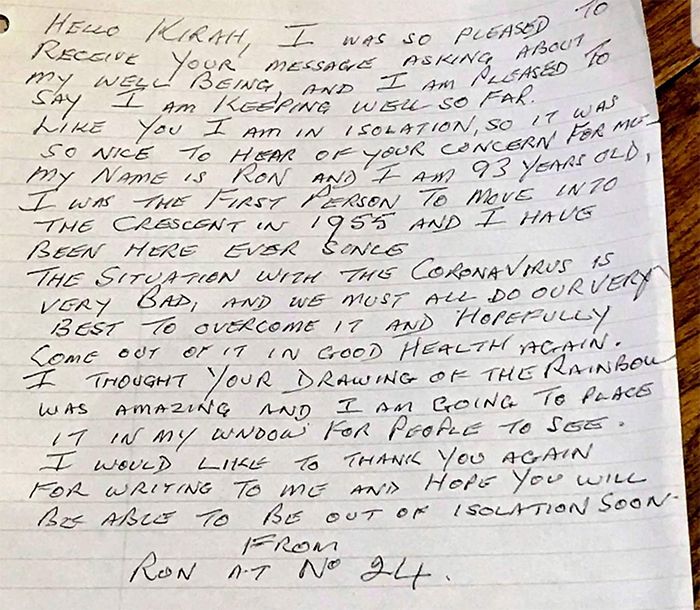 HELLO KIRAH, I WAS SO PLEASED TO
RECEIVE YOUR MESSAGE ASKING ABOUT
MY WELL BEING, AND I AM PLEASED TO
SAY I AM KEEPING WELL SO FAR.
LIKE YOU I AM IN ISOLATION, SO IT WAS
SO NICE TO HEAR OF YOUR CONCERN FOR ME
MY NAME IS RON AND I AM 93 YEARS OLD,
I WAS THE FIRST PERSON TO MOVE INTO
THE CRESCENT IN 1955 AND I HAVE
BEEN HERE EVER SINCE
THE SITUATION WITH THE CORONAVIRUS IS
VERY BAD, AND WE MUST ALL DO OUR VERY
BEST TO OVERCOME IT AND HOPEFULLY
COME OUT OF IT IN GOOD HEALTH AGAIN.
I THOUGHT YOUR DRAWING OF THE RAINBOW
WAS AMAZING AND I AM GOING TO PLACE
IT IN MY WNDOW FOR PEOPLE TO SEE.
I WOULD LIKE TO THANK YOU AGAIN
FOR WRITING TO ME AND HOPE YOU WILL
BE ABLE TO BE OUT OF ISOLATION SOON.
FROM
RON AT No 24.